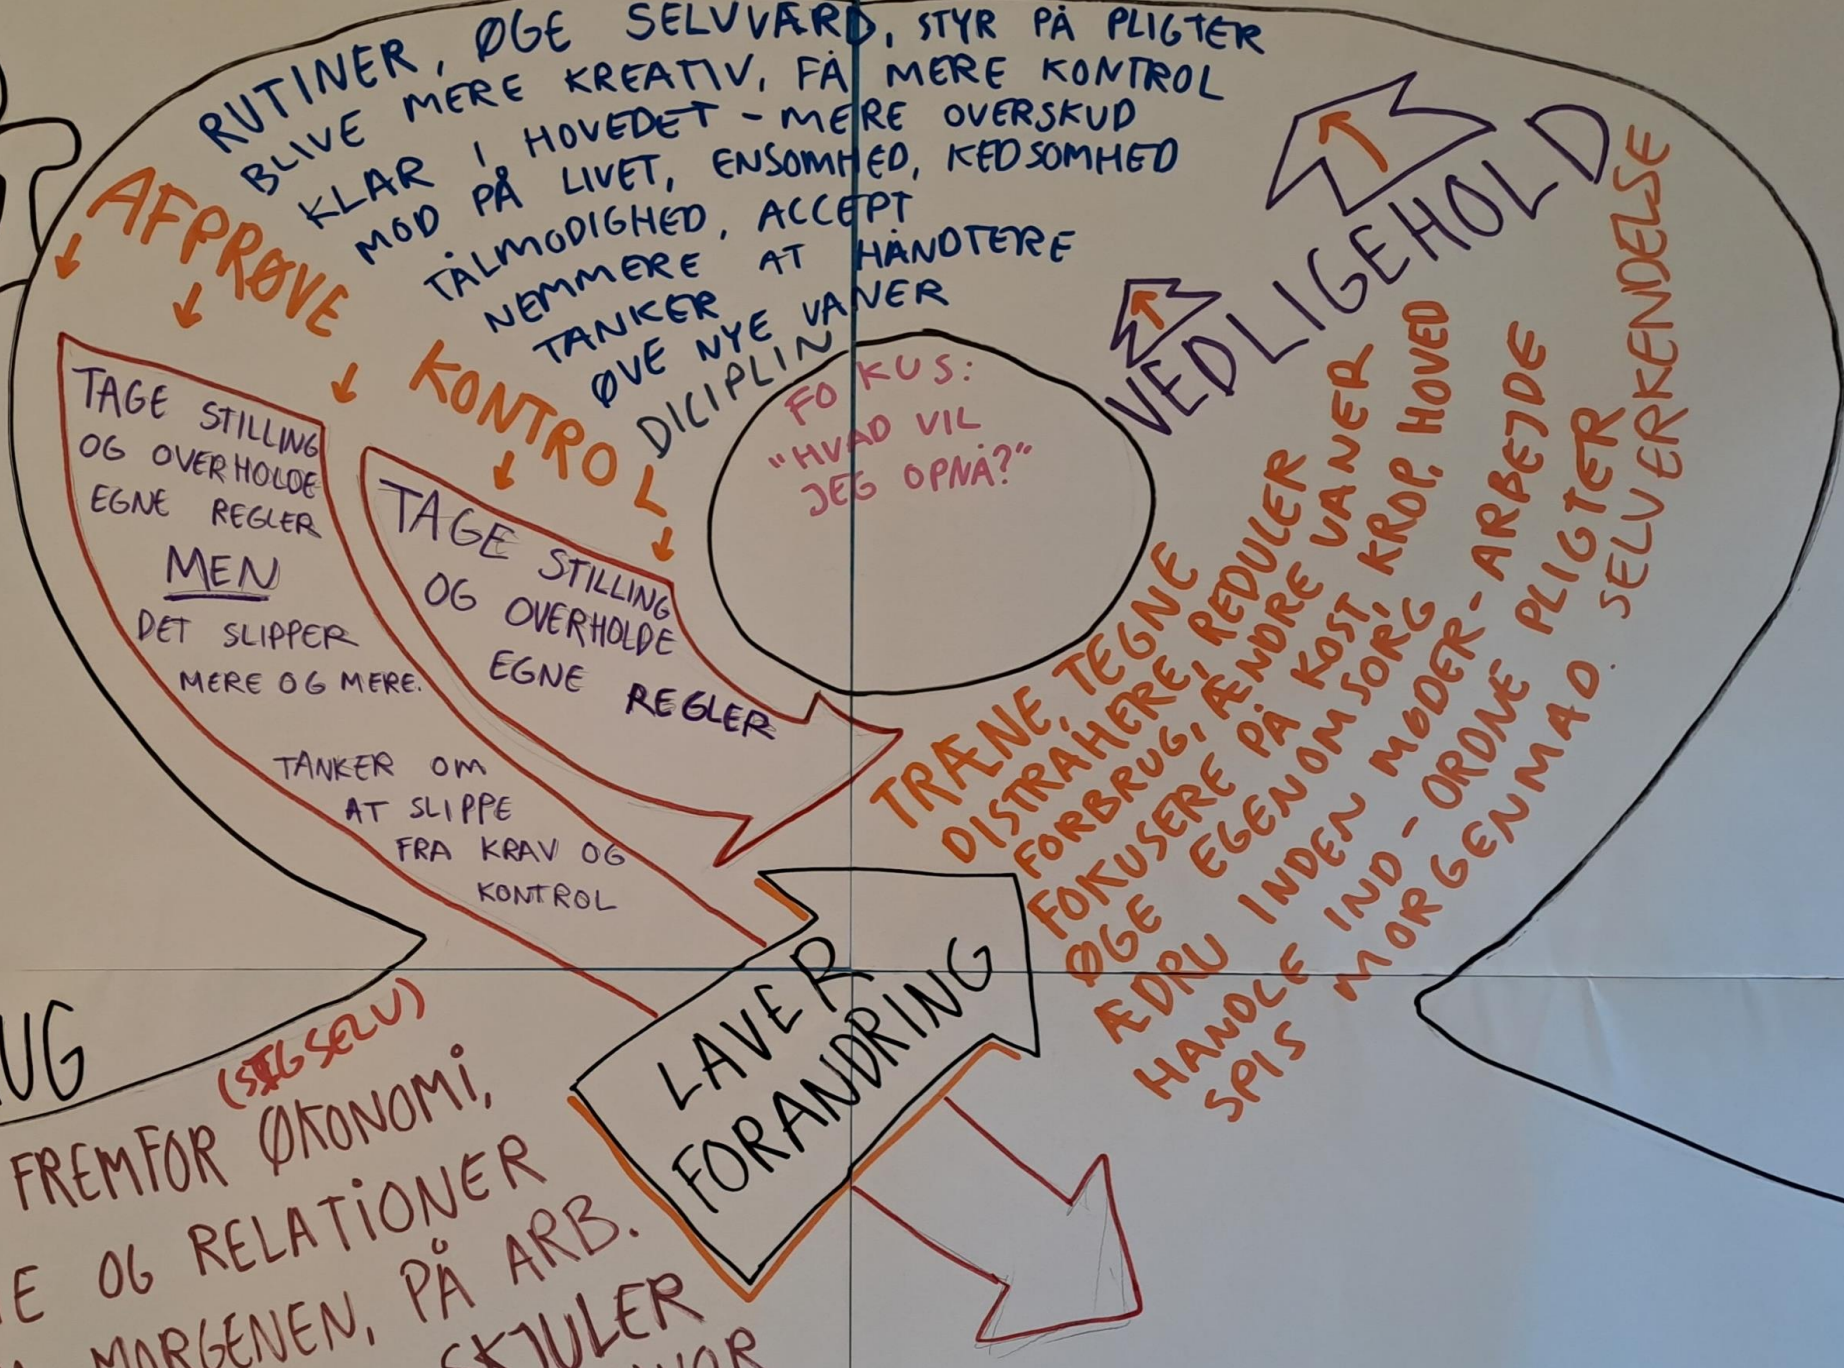 RUTINER, ØGE SELVVÆRD, STYR PÅ PLIGTER
BLIVE MERE KREATIV, FÅ MERE KONTROL
KLAR I HOVEDET - MERE OVERSKUD
MOD PÅ LIVET, ENSOMHED, KEDSOMHED
TÅLMODIGHED, ACCEPT
NEMMERE AT HÅNDTERE
TANKER
ØVE NYE VANER
DICIPLIN
AFPRØVE
KONTROL
TAGE STILLING
OG OVERHOLDE
EGNE REGLER
MEN
DET SLIPPER
MERE OG MERE.
TANKER OM
AT SLIPPE
FRA KRAV OG
KONTROL
TAGE STILLING
OG OVERHOLDE
EGNE REGLER
FOKUS:
"HVAD VIL
JEG OPNÅ?"
VEDLIGEHOLD
TRÆNE, TEGNE
DISTRAHERE, REDULER
FORBRUG, ÆNDRE VANER
FOKUSERE PÅ KOST, KROP, HOVED
ØGE EGENOMSORG
ÆDRU INDEN MØDER - ARBEJDE
HANDLE IND - ORDNE PLIGTER
SPIS MORGENMAD. SELVERKENDELSE
LAVER
FORANDRING
UG
(SIG SELV)
FREMFOR ØKONOMI,
E OG RELATIONER
MORGENEN, PÅ ARB.
SKJULER